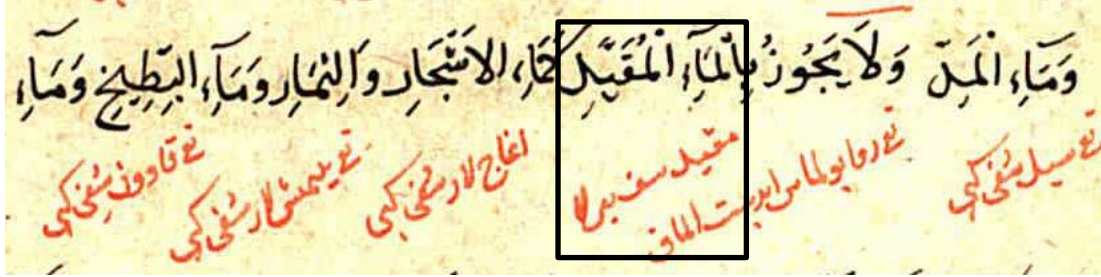 وَمَاءِ الْمَدِّ وَلَا يَجُوزُ بِالْمَاءِ الْمُقَيَّدِ كَمَاءِ الاَشْجَارِ وَالثِّمَارِ وَمَاءِ البِطِّيخِ وَمَاءِ
سيل سُفى كبى روا بولماس ابدست الماق مقيد سف بيرلا اغاج لار سُفى كبى ييمش لار سُفى كبى قاوون سُفى كبى